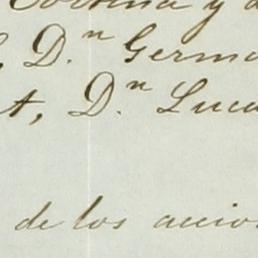 y
D.n Germ
A, D.n Luca
de los accio